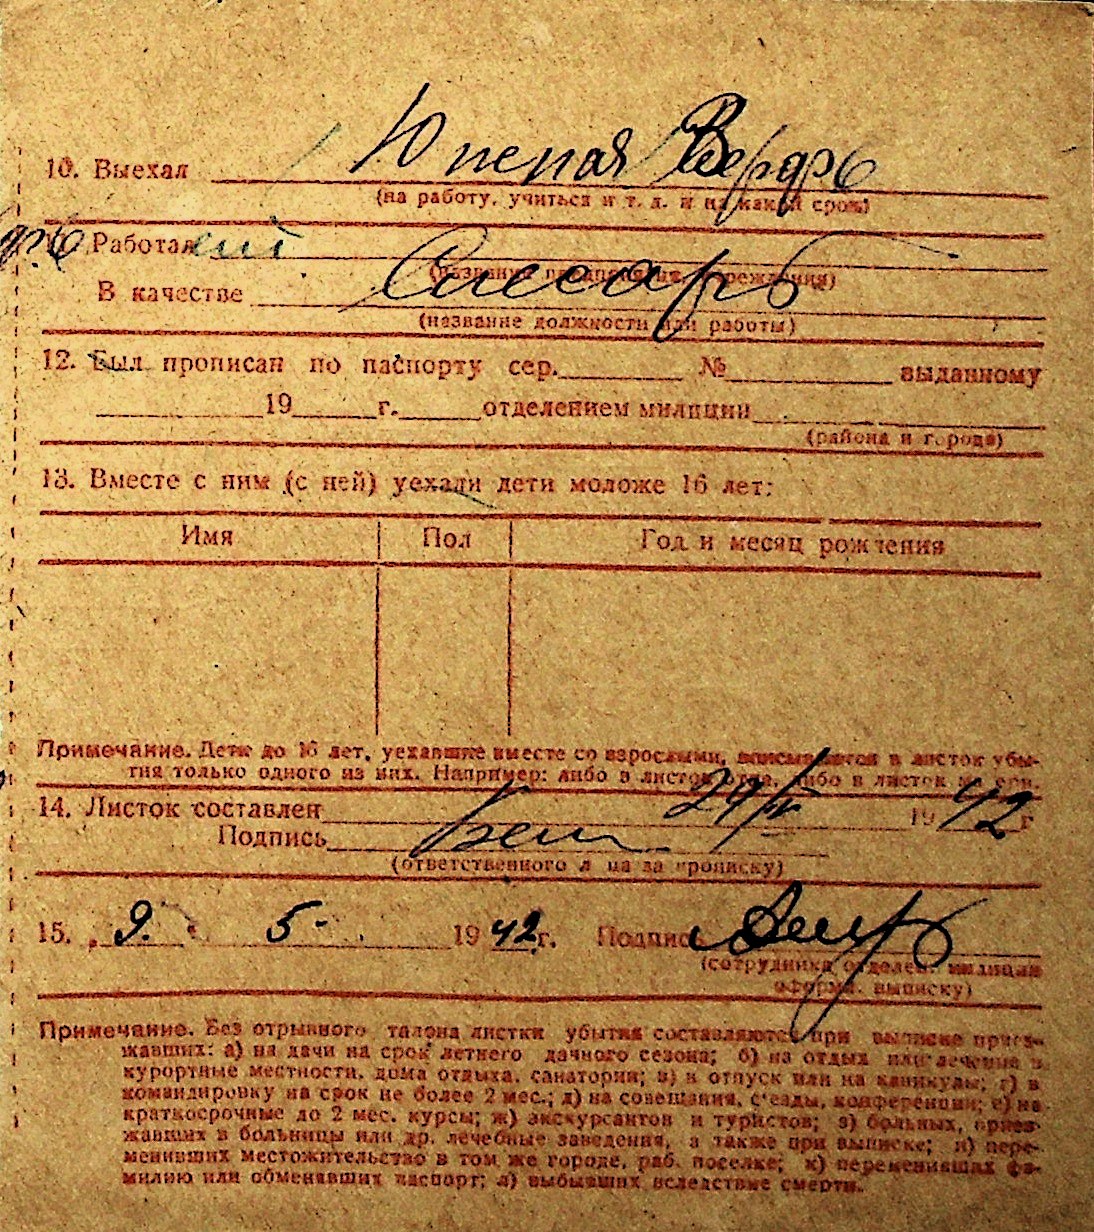 Южная Верфь
10. Выехал
(на работу, учиться и т. д. и на какой срок)
Работал
(название предприятия, учреждения)
Слесарь
В качестве
(название должности или работы)
12. Был прописан по паспорту сер. № выданному
19 г. отделением милиции
(района и города)
13. Вместе с ним (с ней) уехали дети моложе 16 лет:
Имя Пол Год и месяц рождения
Примечание. Дети до 16 лет, уехавшие вместе со взрослыми, вписываются в листок убы-
тия только одного из них. Например: либо в листок отца, либо в листок матери.
14. Листок составлен 29/IV 1942 г
Подпись
(ответственного лица за прописку)
15. „ 9. " 5 - 1942 г. Подпись
(сотрудника отделен. милиции
оформ. выписку)
Примечание. Без отрывного талона листки убытия составляются при выписке приез-
жавших: а) на дачи на срок летнего дачного сезона; б) на отдых или лечение в
курортные местности, дома отдыха, санатории; в) в отпуск или на каникулы; г) в
командировку на срок не более 2 мес.; д) на совещания, с'езды, конференции; е) на
краткосрочные до 2 мес. курсы; ж) экскурсантов и туристов; з) больных, приез-
жавших в больницы или др. лечебные заведения, а также при выписке; и) пере-
менивших местожительство в том же городе, раб. поселке; к) переменивших фа-
милию или обменявших паспорт; л) выбывших вследствие смерти.